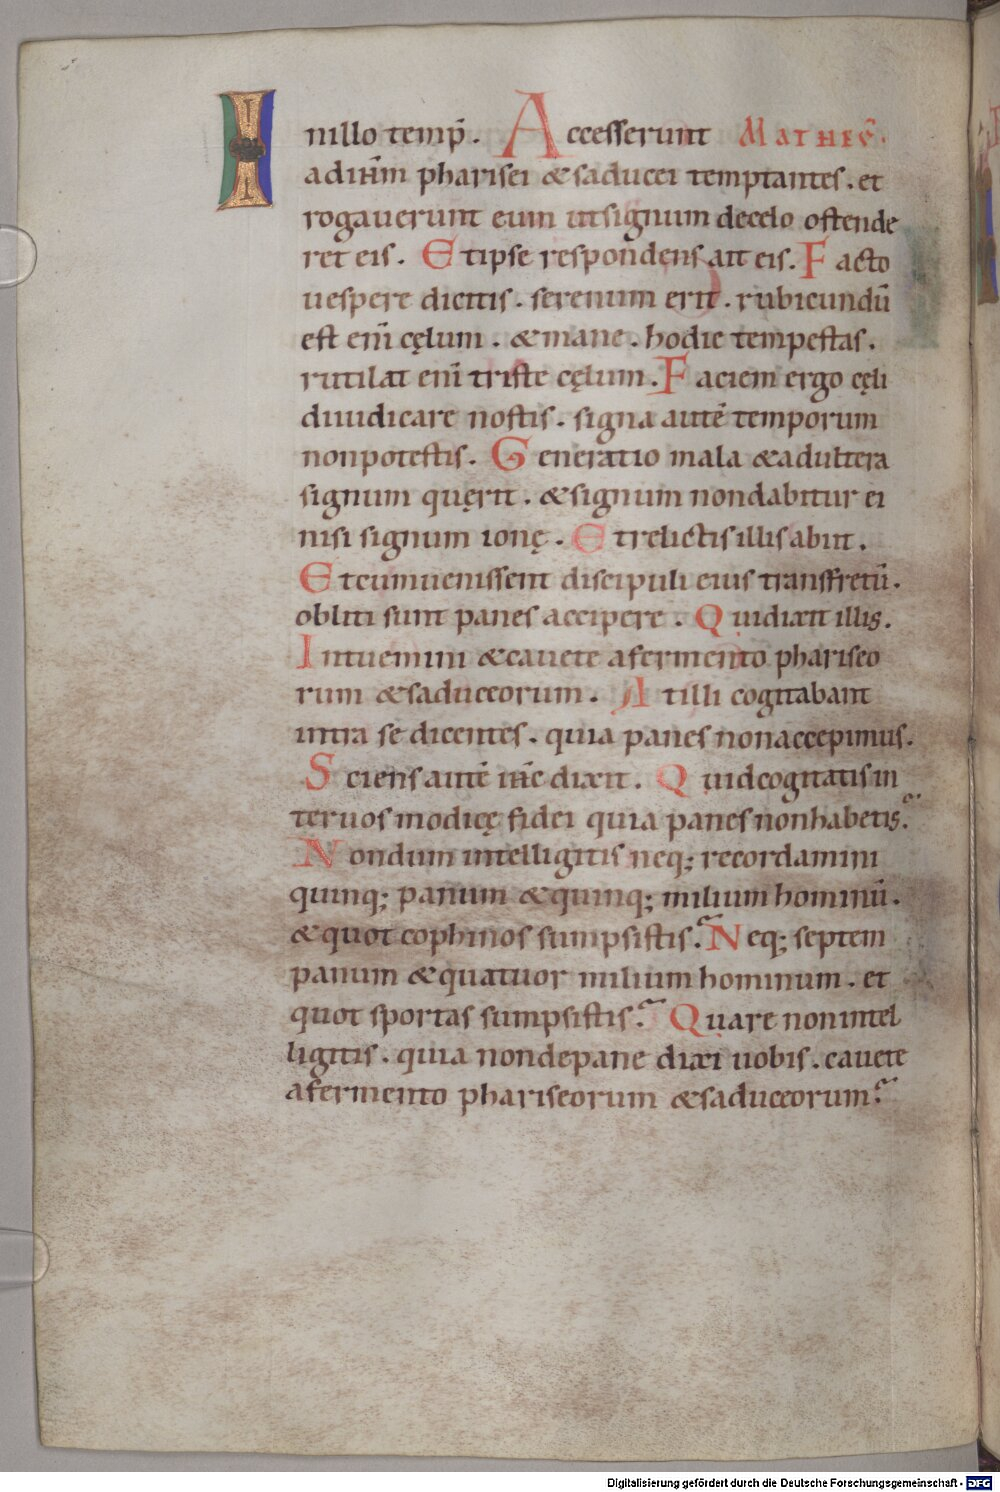 In illo temp̄. Accesserunt MATHEC̄.
ad ih̄m pharisei & saducei temptantes. et
rogauerunt eum ut signum de celo ostende
ret eis. Et ipse respondens ait eis. Facto
uespere dicitis. serenum erit. rubicundū
est enī cęlum. & mane. hodie tempestas.
rutilat enī triste cęlum. Faciem ergo cęli
diiudicare nostis. signa autē temporum
non potestis. Generatio mala & adultera
signum quęrit. & signum non dabitur ei
nisi signum ionę. Et relictis illis abiit.
Et cum uenissent discipuli eius trans fretū.
obliti sunt panes accipere. Qui dixit illis.
Intuemini & cauete a fermento phariseo
rum & saduceorum. At illi cogitabant
intra se dicentes. quia panes non accepimus.
Sciens autē ih̄c dixit. Quid cogitatis in
ter uos modicę fidei quia panes non habetis?
Nondum intelligitis neq; recordamini
quinq; panum & quinq; milium hominū.
& quot cophinos sumpsistis? Neq; septem
panum & quatuor milium hominum. et
quot sportas sumpsistis? Quare non intel
ligitis. quia non de pane dixi uobis. cauete
a fermento phariseorum & saduceorum?
Digitalisierung gefördert durch die Deutsche Forschungsgemeinschaft - DFG